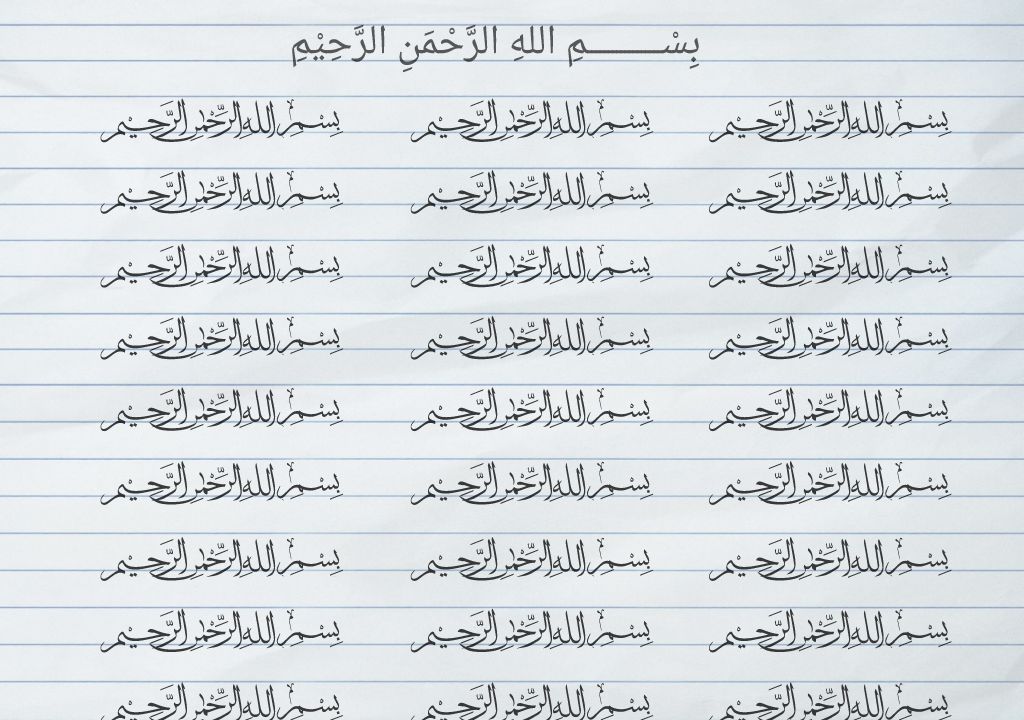 بِسْـــــــــمِ اللهِ الرَّحْمَنِ الرَّحِيْمِ
بِسْمِ اللهِ الرَّحْمٰنِ الرَّحِيْمِ بِسْمِ اللهِ الرَّحْمٰنِ الرَّحِيْمِ بِسْمِ اللهِ الرَّحْمٰنِ الرَّحِيْمِ
بِسْمِ اللهِ الرَّحْمٰنِ الرَّحِيْمِ بِسْمِ اللهِ الرَّحْمٰنِ الرَّحِيْمِ بِسْمِ اللهِ الرَّحْمٰنِ الرَّحِيْمِ
بِسْمِ اللهِ الرَّحْمٰنِ الرَّحِيْمِ بِسْمِ اللهِ الرَّحْمٰنِ الرَّحِيْمِ بِسْمِ اللهِ الرَّحْمٰنِ الرَّحِيْمِ
بِسْمِ اللهِ الرَّحْمٰنِ الرَّحِيْمِ بِسْمِ اللهِ الرَّحْمٰنِ الرَّحِيْمِ بِسْمِ اللهِ الرَّحْمٰنِ الرَّحِيْمِ
بِسْمِ اللهِ الرَّحْمٰنِ الرَّحِيْمِ بِسْمِ اللهِ الرَّحْمٰنِ الرَّحِيْمِ بِسْمِ اللهِ الرَّحْمٰنِ الرَّحِيْمِ
بِسْمِ اللهِ الرَّحْمٰنِ الرَّحِيْمِ بِسْمِ اللهِ الرَّحْمٰنِ الرَّحِيْمِ بِسْمِ اللهِ الرَّحْمٰنِ الرَّحِيْمِ
بِسْمِ اللهِ الرَّحْمٰنِ الرَّحِيْمِ بِسْمِ اللهِ الرَّحْمٰنِ الرَّحِيْمِ بِسْمِ اللهِ الرَّحْمٰنِ الرَّحِيْمِ
بِسْمِ اللهِ الرَّحْمٰنِ الرَّحِيْمِ بِسْمِ اللهِ الرَّحْمٰنِ الرَّحِيْمِ بِسْمِ اللهِ الرَّحْمٰنِ الرَّحِيْمِ
بِسْمِ اللهِ الرَّحْمٰنِ الرَّحِيْمِ بِسْمِ اللهِ الرَّحْمٰنِ الرَّحِيْمِ بِسْمِ اللهِ الرَّحْمٰنِ الرَّحِيْمِ